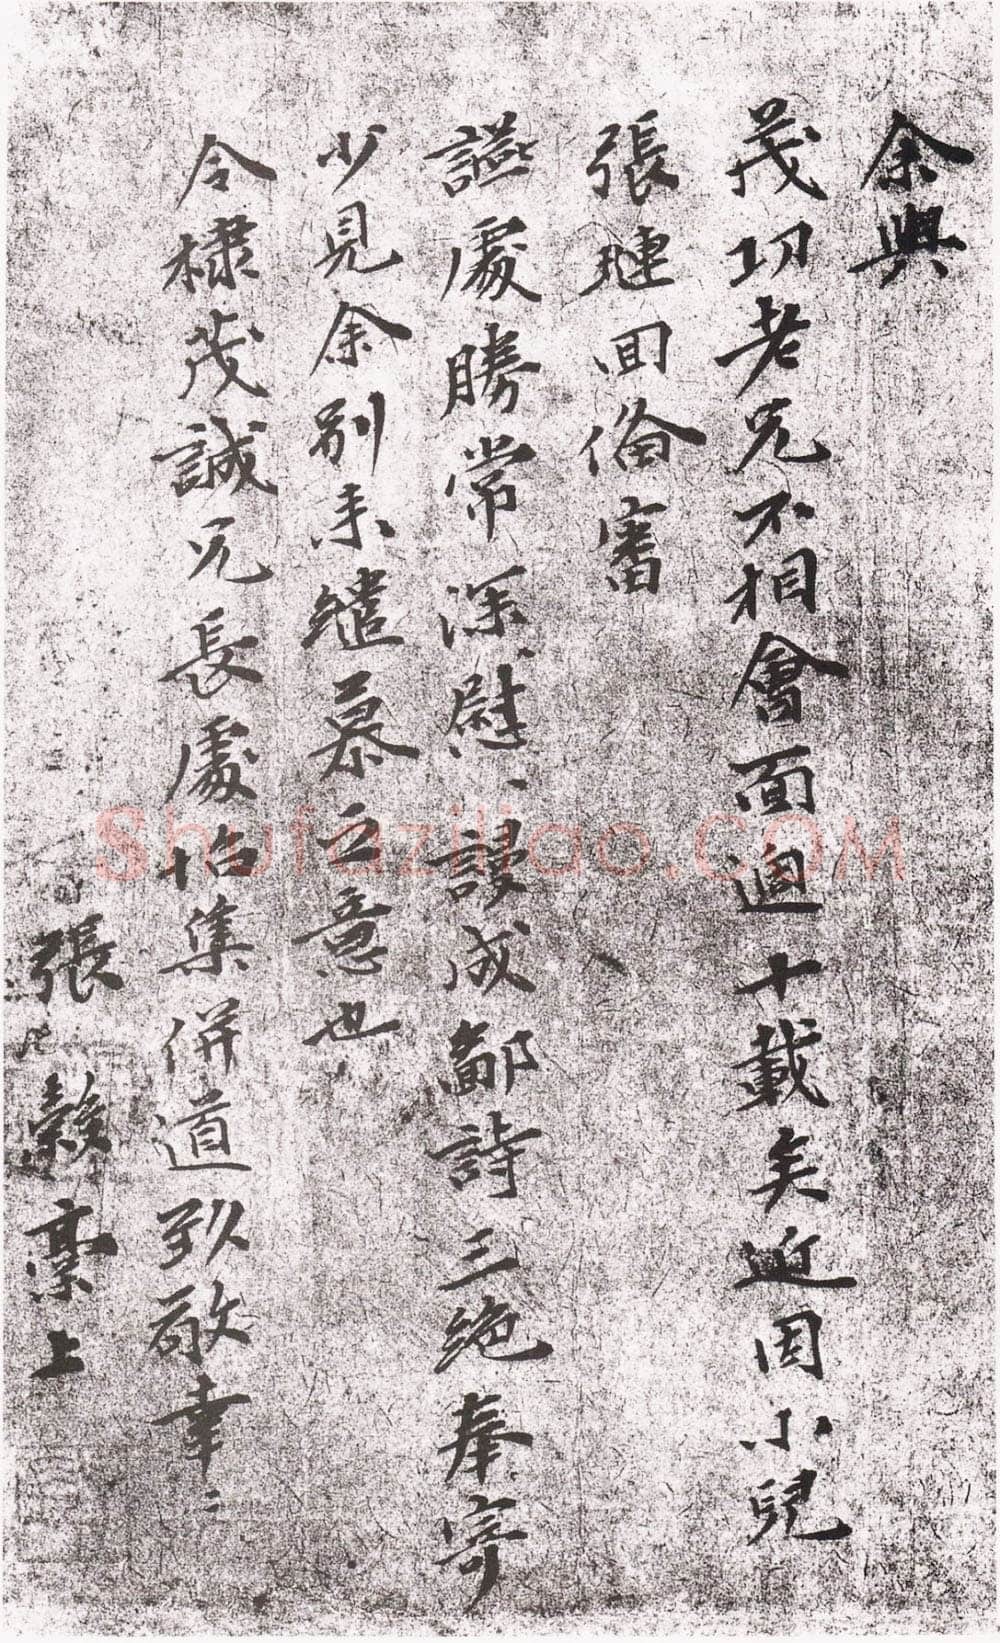 余與
茂功老兄不相會面迴十載矣近因小兒
張璉回俻審
讌處勝常深〻慰〻謾成鄙詩三絕奉寄
少見余別來繾慕之意也
令棣茂誠兄長處怡集併道致敬幸〻
張稾上
Shufaziliao.COM